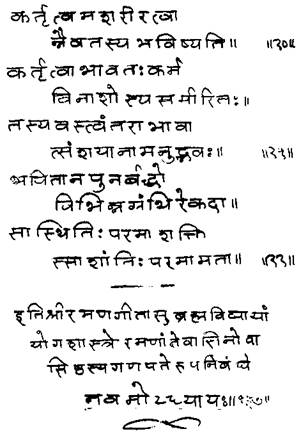 कर्तृत्वमशरीरत्वा
न्नैवतस्यभविष्यति॥
कर्तृत्वाभावतःकर्म
विनाशोस्यसमीरितः॥
तस्यवस्त्वंतराभावा
त्संशयानामनुद्भवः॥
भवितानपुनर्बद्धो
विभिन्नग्रंथिरेकदा॥
सास्थितिःपरमाशक्ति
स्साशांतिःपरमामता॥
इतिश्रीरमणगीतासुब्रह्मविद्यायां
योगशास्त्रेरमणांतेवासिनोवा
सिष्ठस्यगणपतेरुपनिबंधे
नवमोऽध्यायः